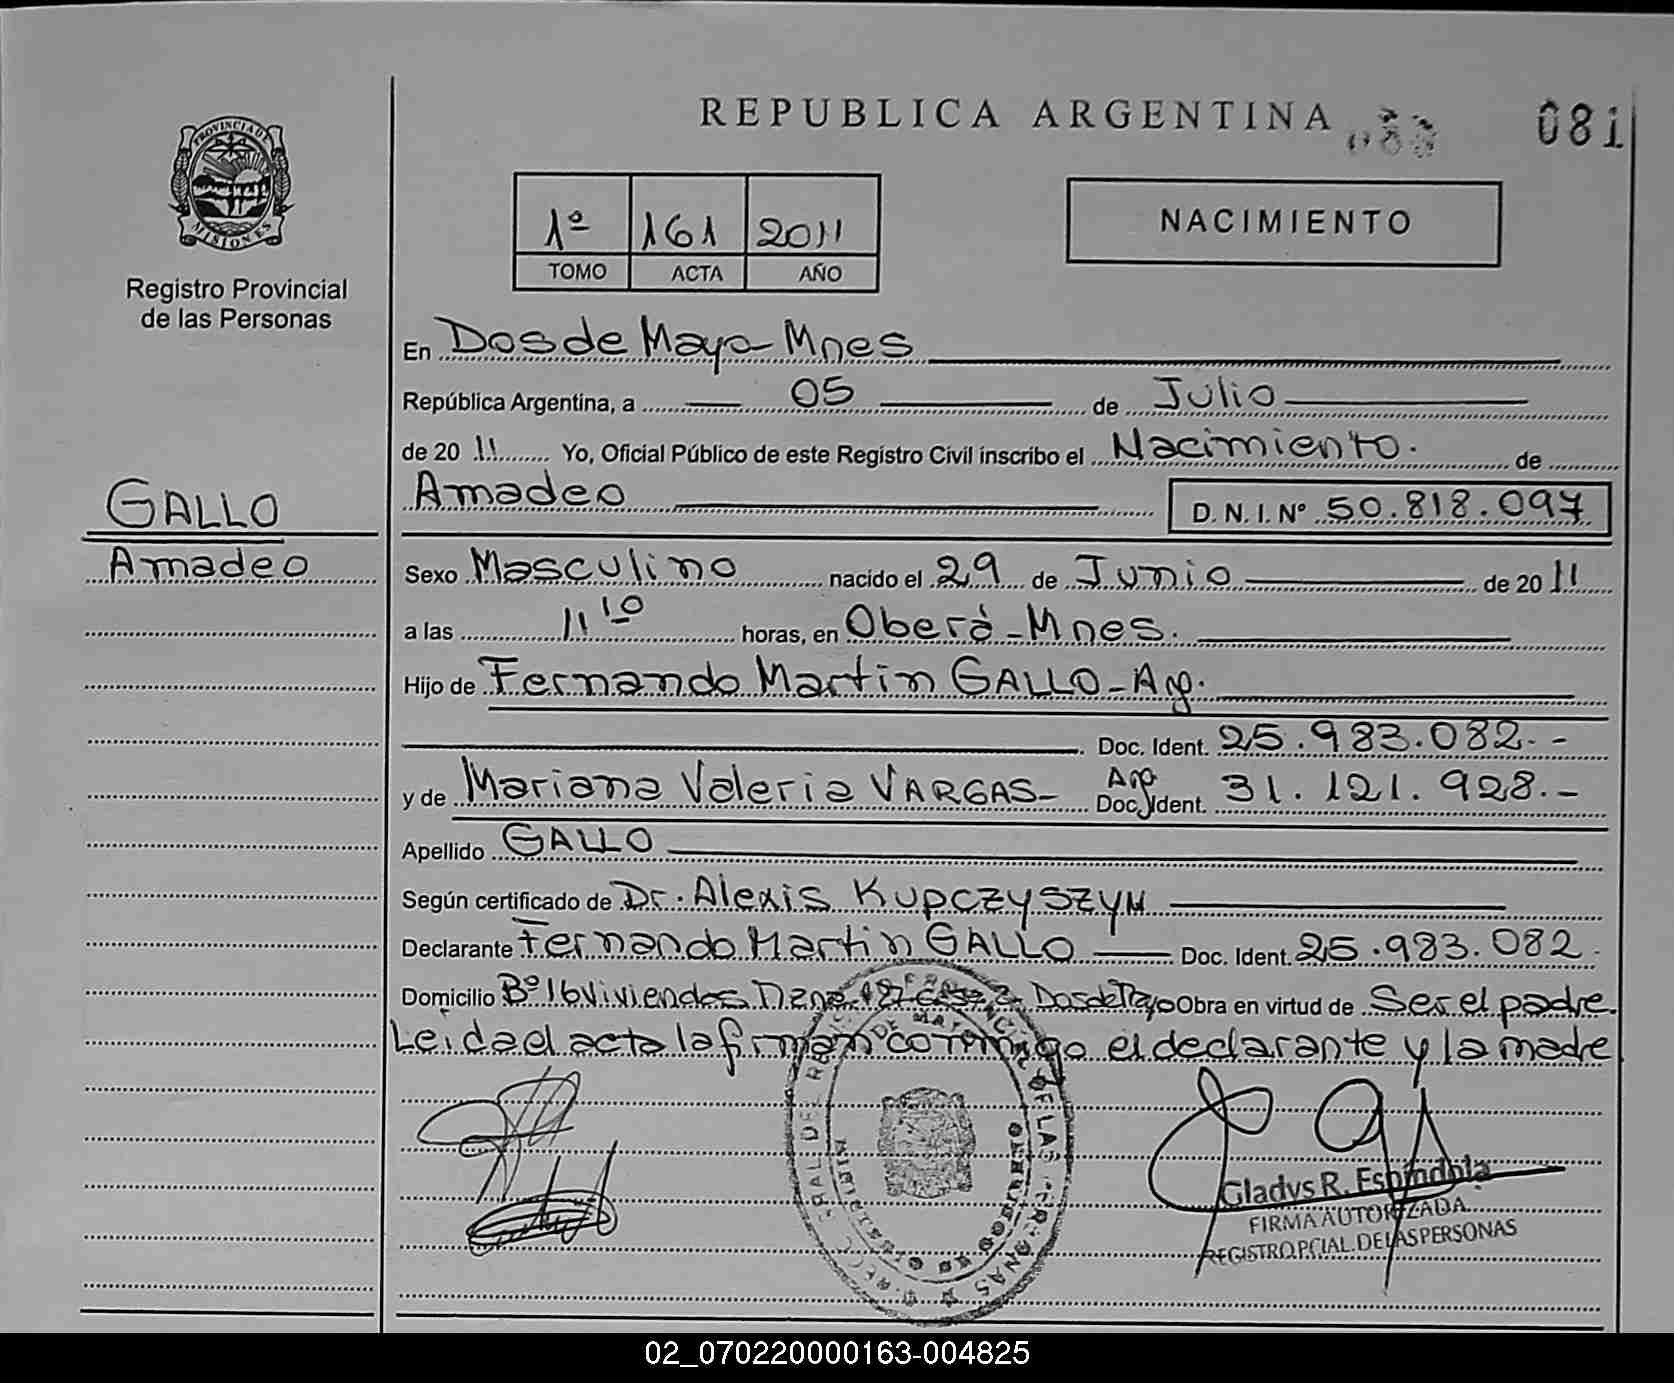 REPUBLICA ARGENTINA
081
PROVINCIA DE MISIONES
Registro Provincial
de las Personas
1º 161 2011
TOMO ACTA AÑO
NACIMIENTO
En Dos de Mayo - Mnes
República Argentina, a 05 de Julio
de 20 11 Yo, Oficial Público de este Registro Civil inscribo el Nacimiento. de
Amadeo D.N.I. Nº 50.818.097
GALLO
Amadeo
Sexo Masculino nacido el 29 de Junio de 20 11
a las 11 10 horas, en Oberá - Mnes.
Hijo de Fernando Martin GALLO - Arg.
Doc. Ident. 25.983.082.-
y de Mariana Valeria VARGAS - Arg Doc. Ident. 31.121.928.-
Apellido GALLO
Según certificado de Dr. Alexis Kupczyszyn
Declarante Fernando Martin GALLO Doc. Ident. 25.983.082.
Domicilio Bº 16 Viviendas Dos de Mayo Obra en virtud de Ser el padre.
Leída el acta la firman conmigo el declarante y la madre
Gladys R. Espindola
FIRMA AUTORIZADA
REGISTRO PCIAL. DE LAS PERSONAS
02_070220000163-004825